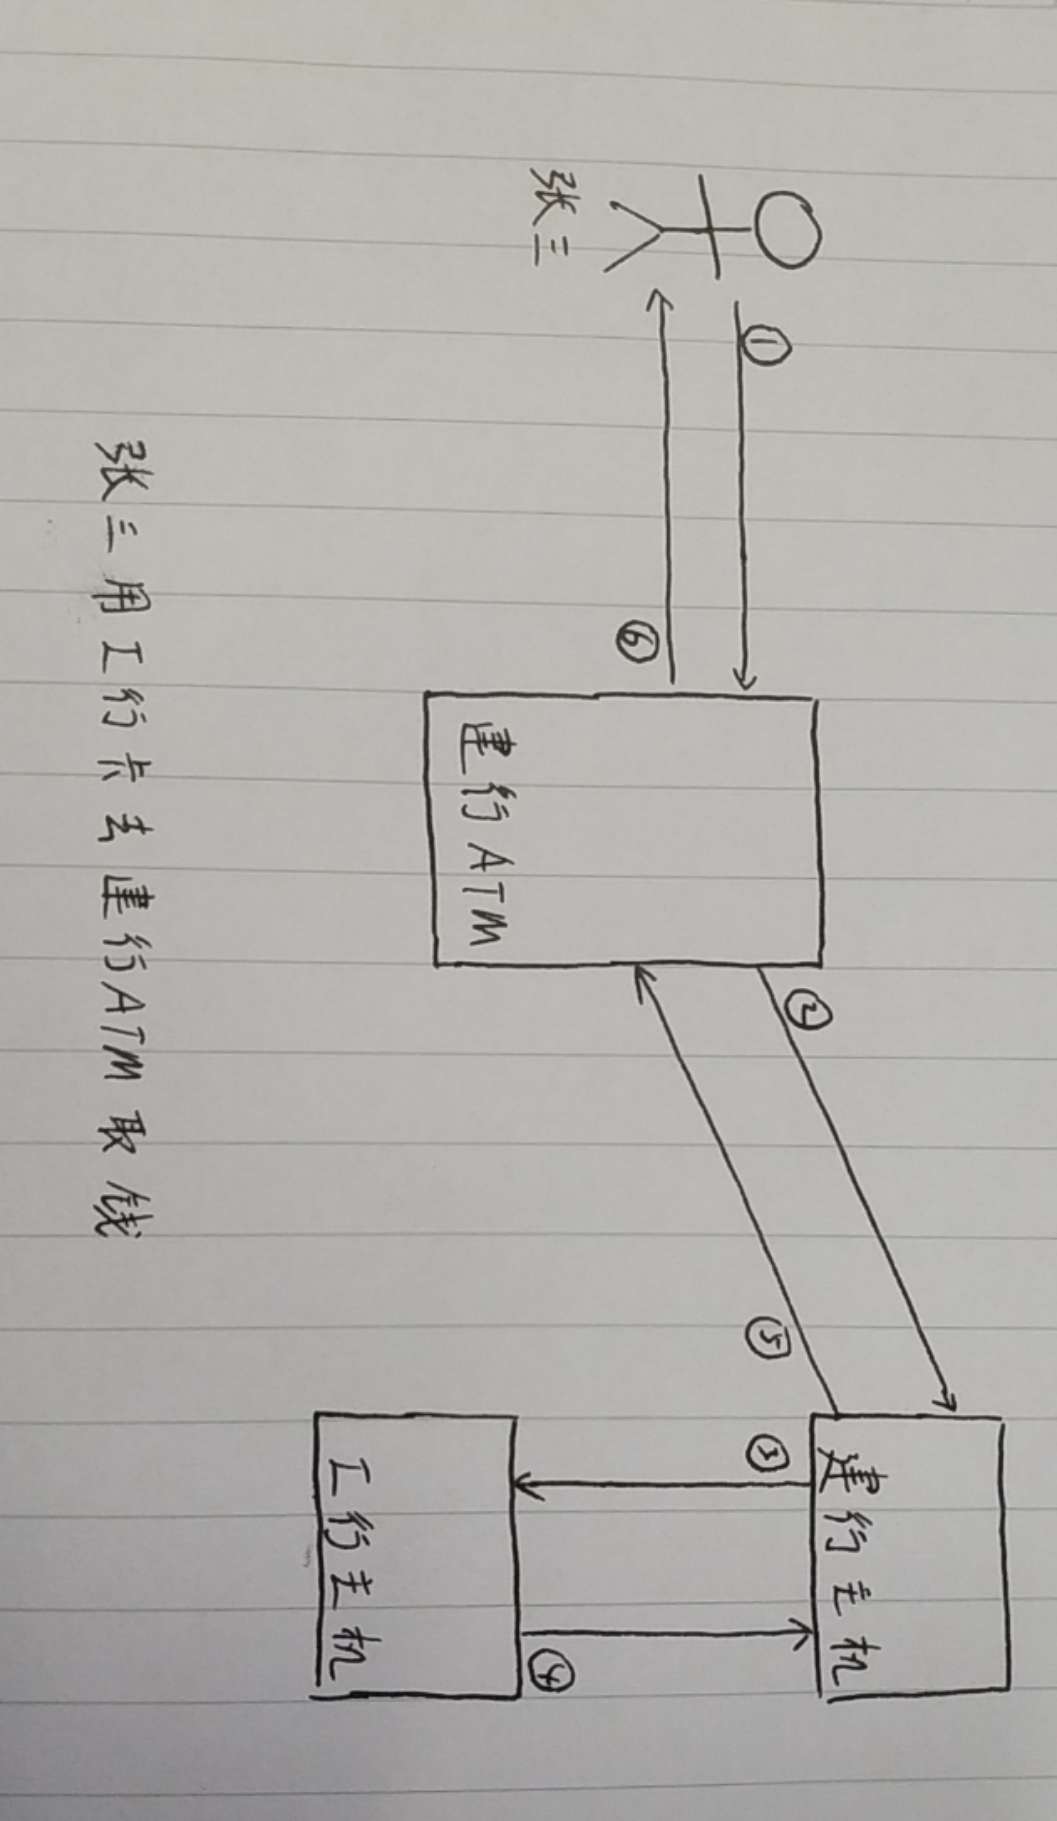 ①
张三
⑥
建行ATM
②
⑤
建行主机
③
④
工行主机
张三用工行卡去建行ATM取钱